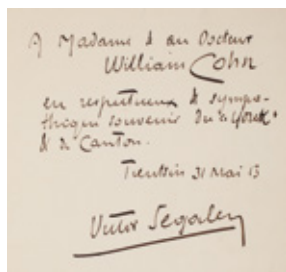 A Madame & au Docteur
William Cohn
en respectueux & sympa-
thique souvenir du
& de Canton.
Tientsin 31 Mai 13
Victor Segalen